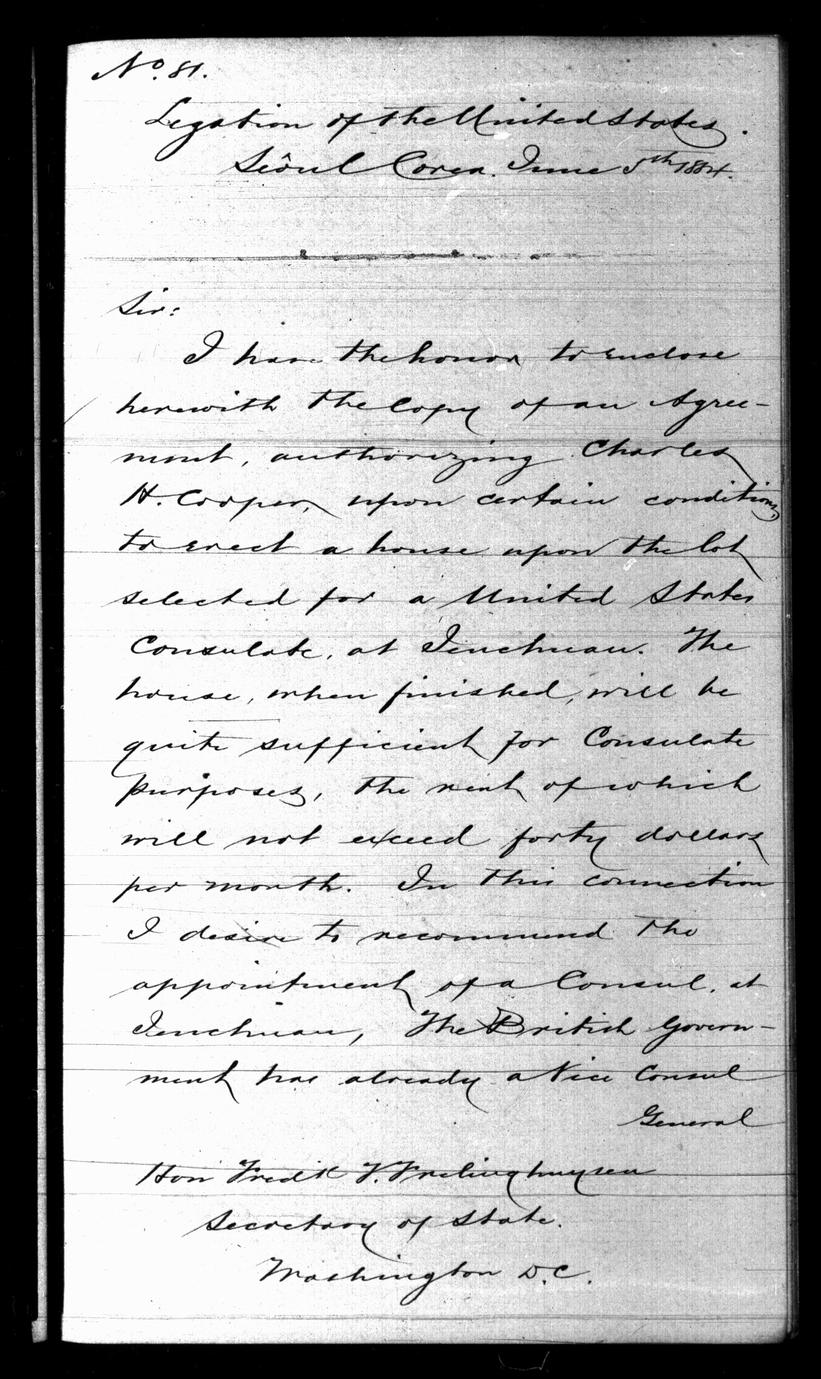 No. 81.
Legation of the United States.
Sèoul Corea. June 5th 1884.
Sir:
I have the honor to enclose
herewith the Copy of an Agree-
ment, authorizing Charles
H. Cooper, upon certain conditions,
to erect a house upon the lot
selected for a United States
Consulate, at Jenchuan. The
house, when finished, will be
quite sufficient for Consulate
purposes, the rent of which
will not exceed forty dollars
per month. In this connection
I desire to recommend the
appointment of a Consul, at
Jenchuan, The British Govern-
ment has already a Vice Consul
General
Hon Fredk T. Frelinghuysen
Secretary of State.
Washington D.C.